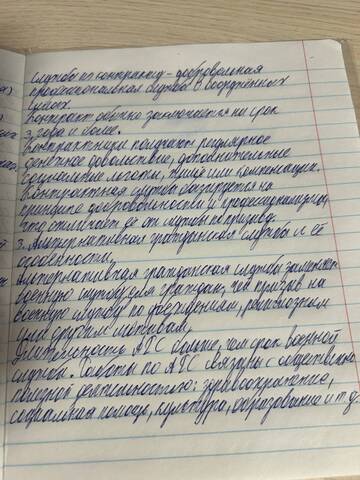 Служба по контракту - добровольная
профессиональная служба в вооружённых
силах.
Контракт обычно заключается на срок
3 года и более.
Контрактники получают регулярное
денежное довольствие, дополнительные
социальные льготы, или компенсации.
Контрактная служба базируется на
принципе добровольности и профессионализма,
что отличает её от службы по призыву.
3. Альтернативная гражданская служба и её
особенности.
Альтернативная гражданская служба заменяет
военную службу для граждан, чей призыв на
военную службу по убеждениям, религиозным
или другим мотивам.
Длительность АГС больше, чем срок военной
службы. Работы по АГС связаны с общественно
полезной деятельностью: здравоохранение,
социальная помощь, культура, образование и т.д.